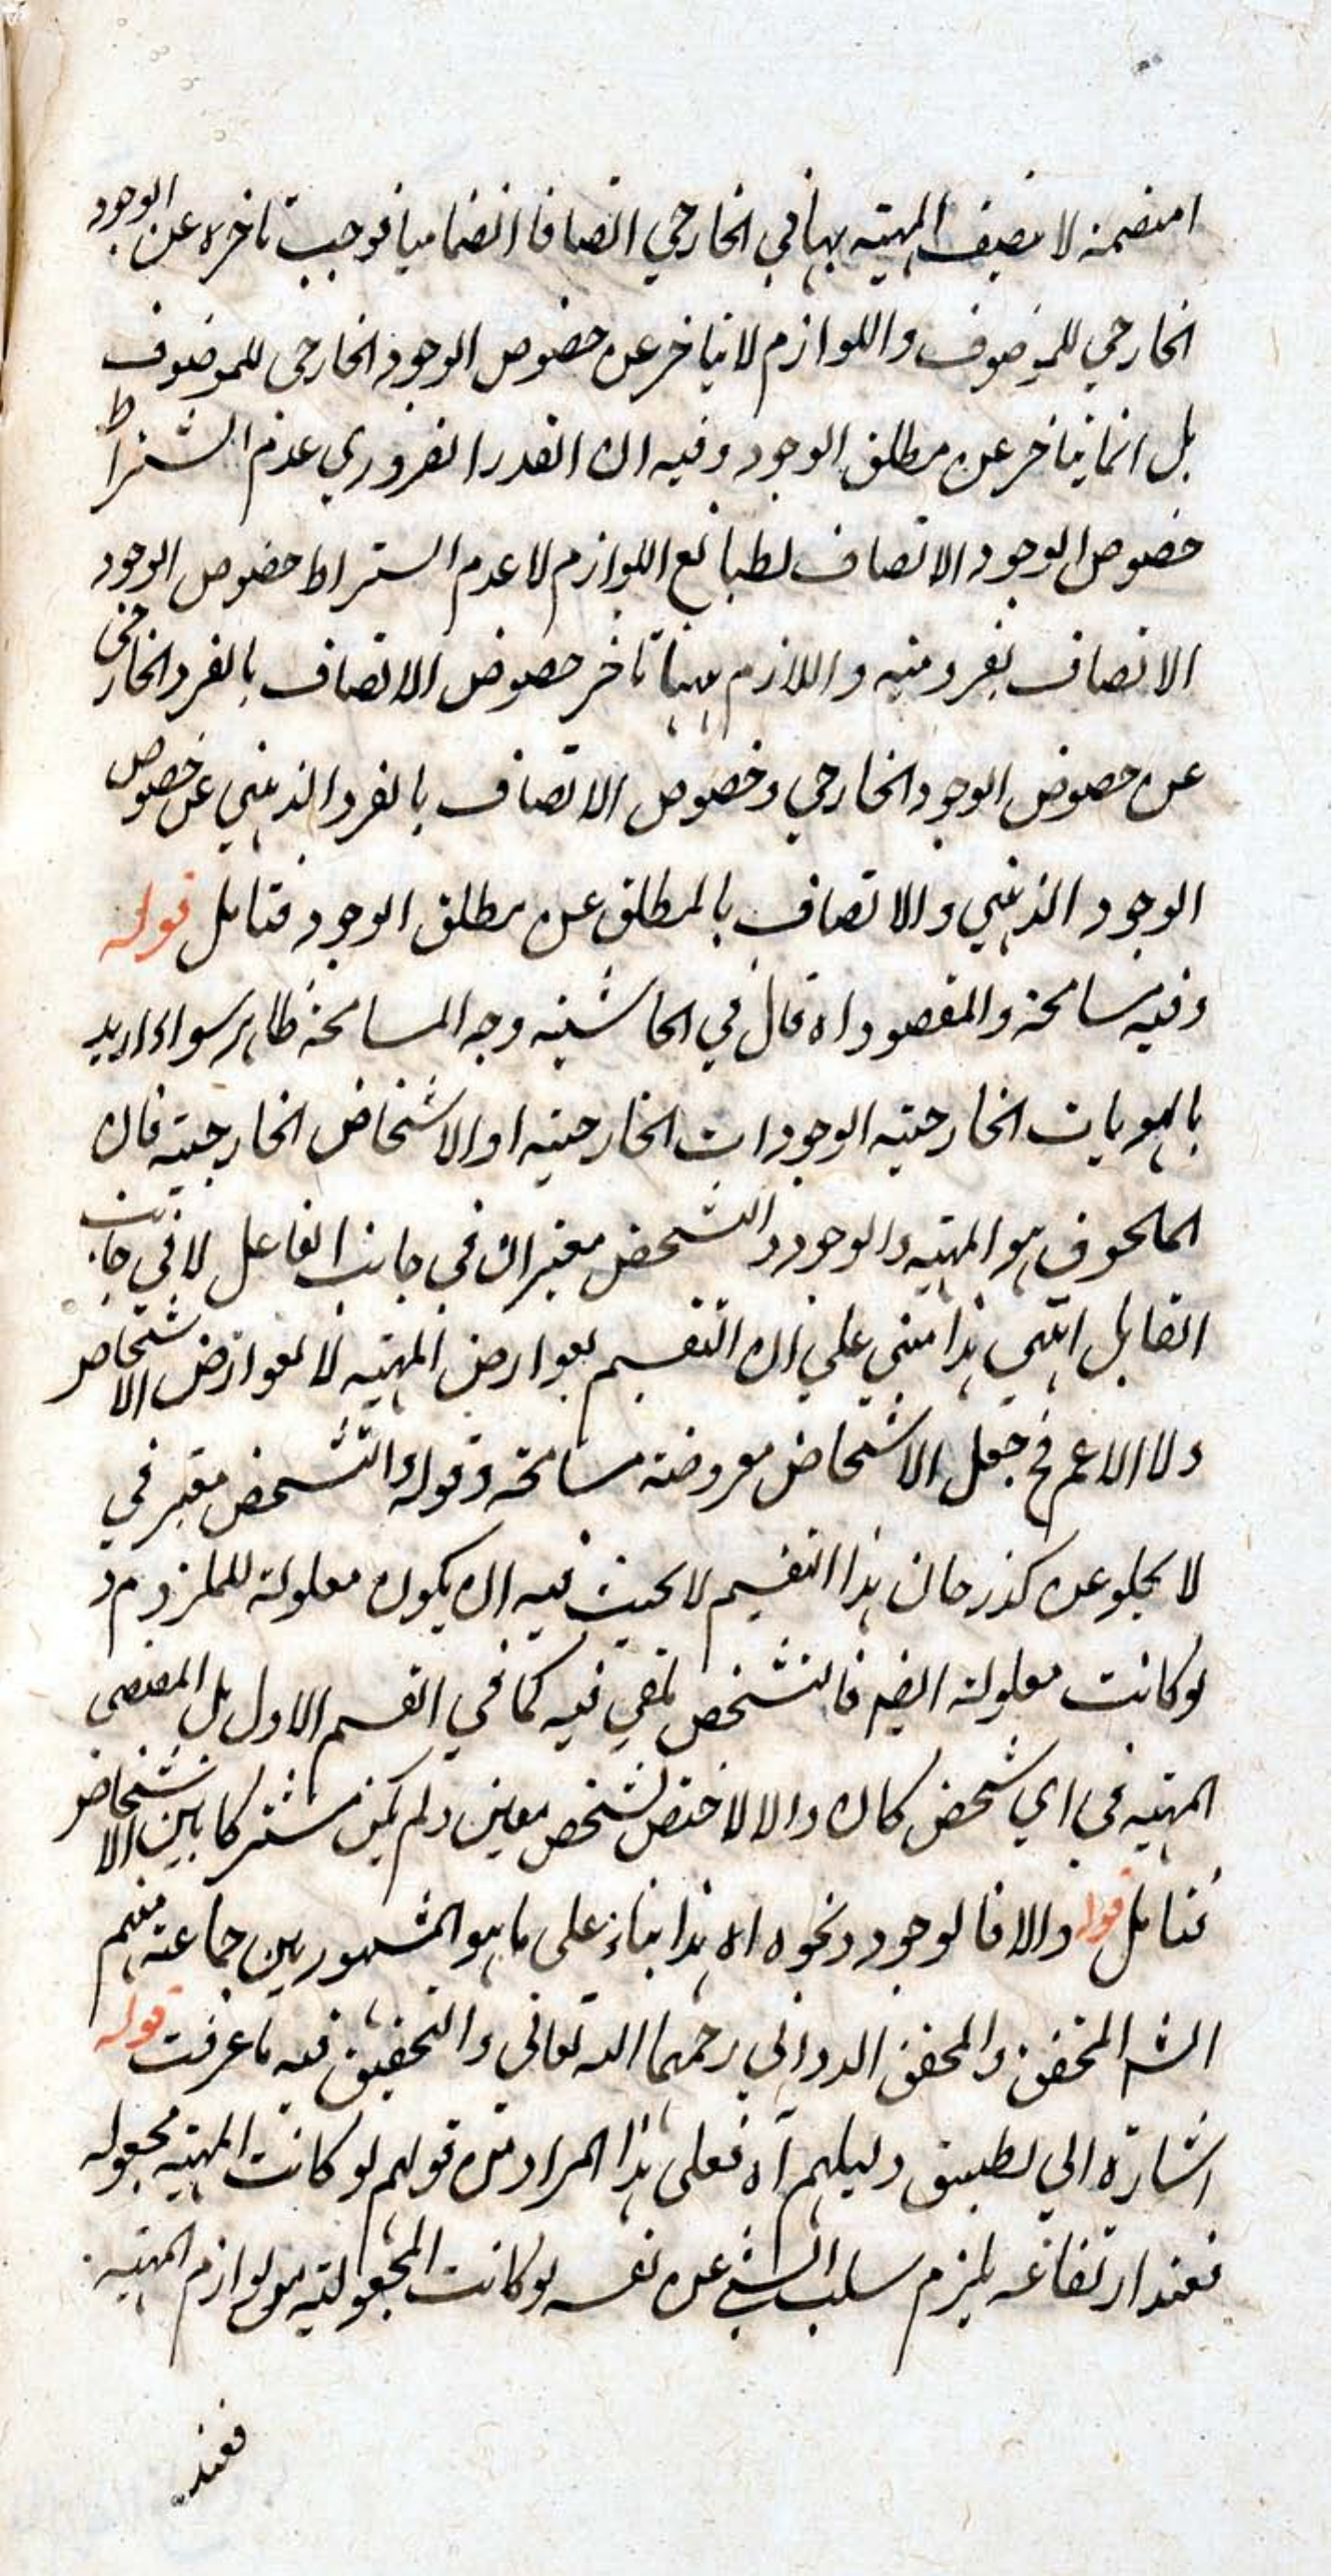 امنضمنه لا تصيف المهية بها في الخارجي اتصافا انضماميا فوجب تاخره عن الوجود
الخارجي للموصوف واللوازم لا يتاخر عن خصوص الوجود الخارجي للموصوف
بل انما يتاخر عن مطلق الوجود وفيه ان القدر الضروري عدم اشتراط
خصوص الوجود الاتصاف لطبائع اللوازم لا عدم اشتراط خصوص الوجود
الاتصاف بفرد منه واللازم ههنا تاخر خصوص الاتصاف بالفرد الخارجي
عن خصوص الوجود الخارجي وخصوص الاتصاف بالفرد الذهني عن خصوص
الوجود الذهني والاتصاف بالمطلق عن مطلق الوجود فتامل قوله
وفيه مسامحة والمقصود اه قال في الحاشية وجه المسامحة ظاهر سواء اريد
بالهويات الخارجية الوجودات الخارجية او الاشخاص الخارجية فان
الملحوق هو المهية والوجود والتشخص معتبران في جانب الفاعل لا في جانب
القابل انتهى هذا مبني على ان التقسيم لعوارض المهية لا لعوارض الاشخاص
ولا الاعم فح جعل الاشخاص معروضة مسامحة وقوله والتشخص معتبر في
لا يخلو عن كدر فان هذا التقسيم لا يجب فيه ان يكون معلولة للملزوم و
لو كانت معلولة ايضا فالتشخص لمقى فيه كما في القسم الاول بل المقتضى
المهية في اي شخص كان والا لاختص لشخص معين ولم يكن مشتركا بين الاشخاص
فتامل قوله والا فالوجود ونحوه اه هذا بناء على ما هو المشهور بين جماعة منهم
الشه المحقق والمحقق الدواني رحمهما الله تعالى والتحقيق فيه ما عرفت قوله
اشارة الى تطبيق دليلهم آه فعلى هذا المراد من قولهم لو كانت المهية مجعولة
فعند ارتفاعه يلزم سلب الشئ عن نفسه لو كانت المجعولية من لوازم المهية
فعند